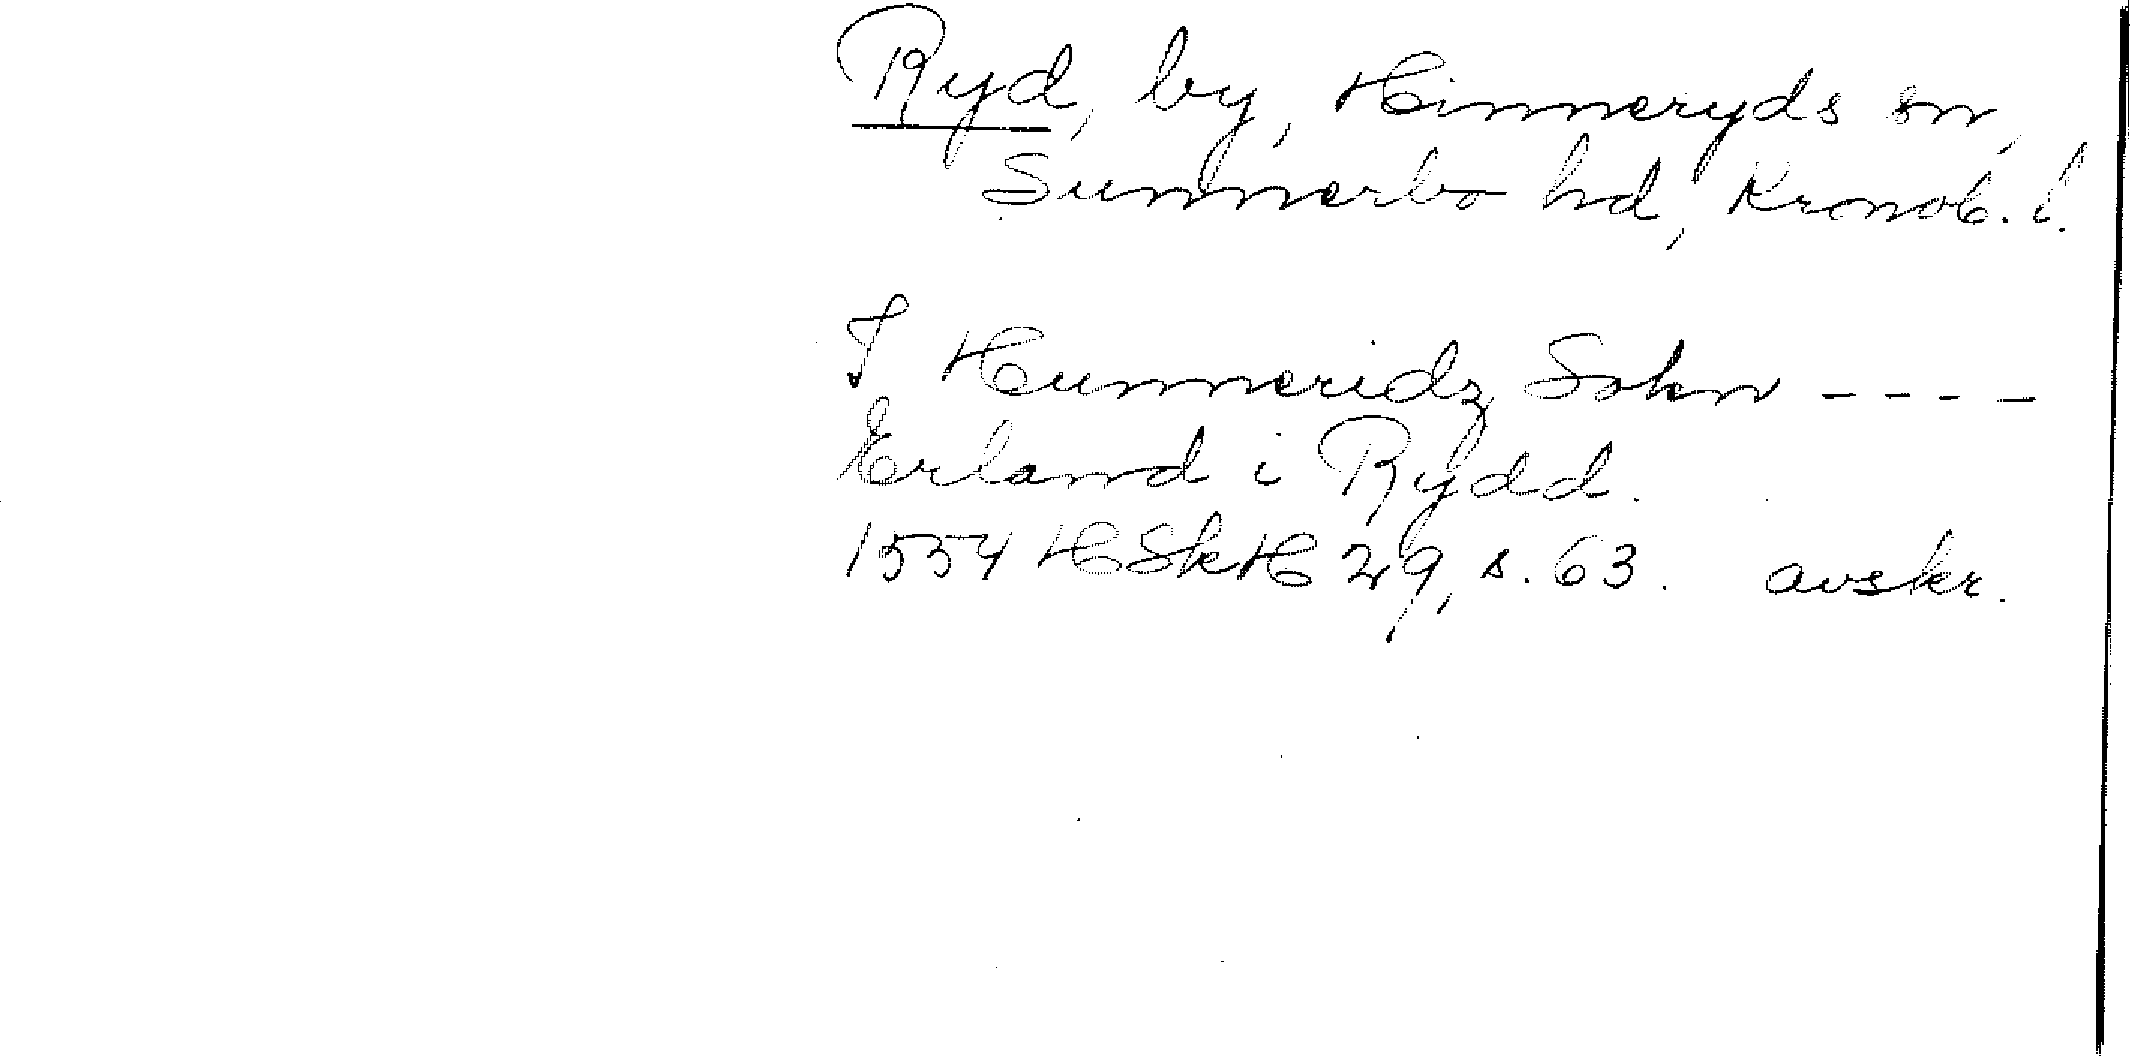 Ryd, by, Hinneryds sn,
Sunnerbo hd, Kronob. l.
I Hunneridz Sokn ----
Erland i Rydd.
1554 HSkH 29, s. 63. avskr.